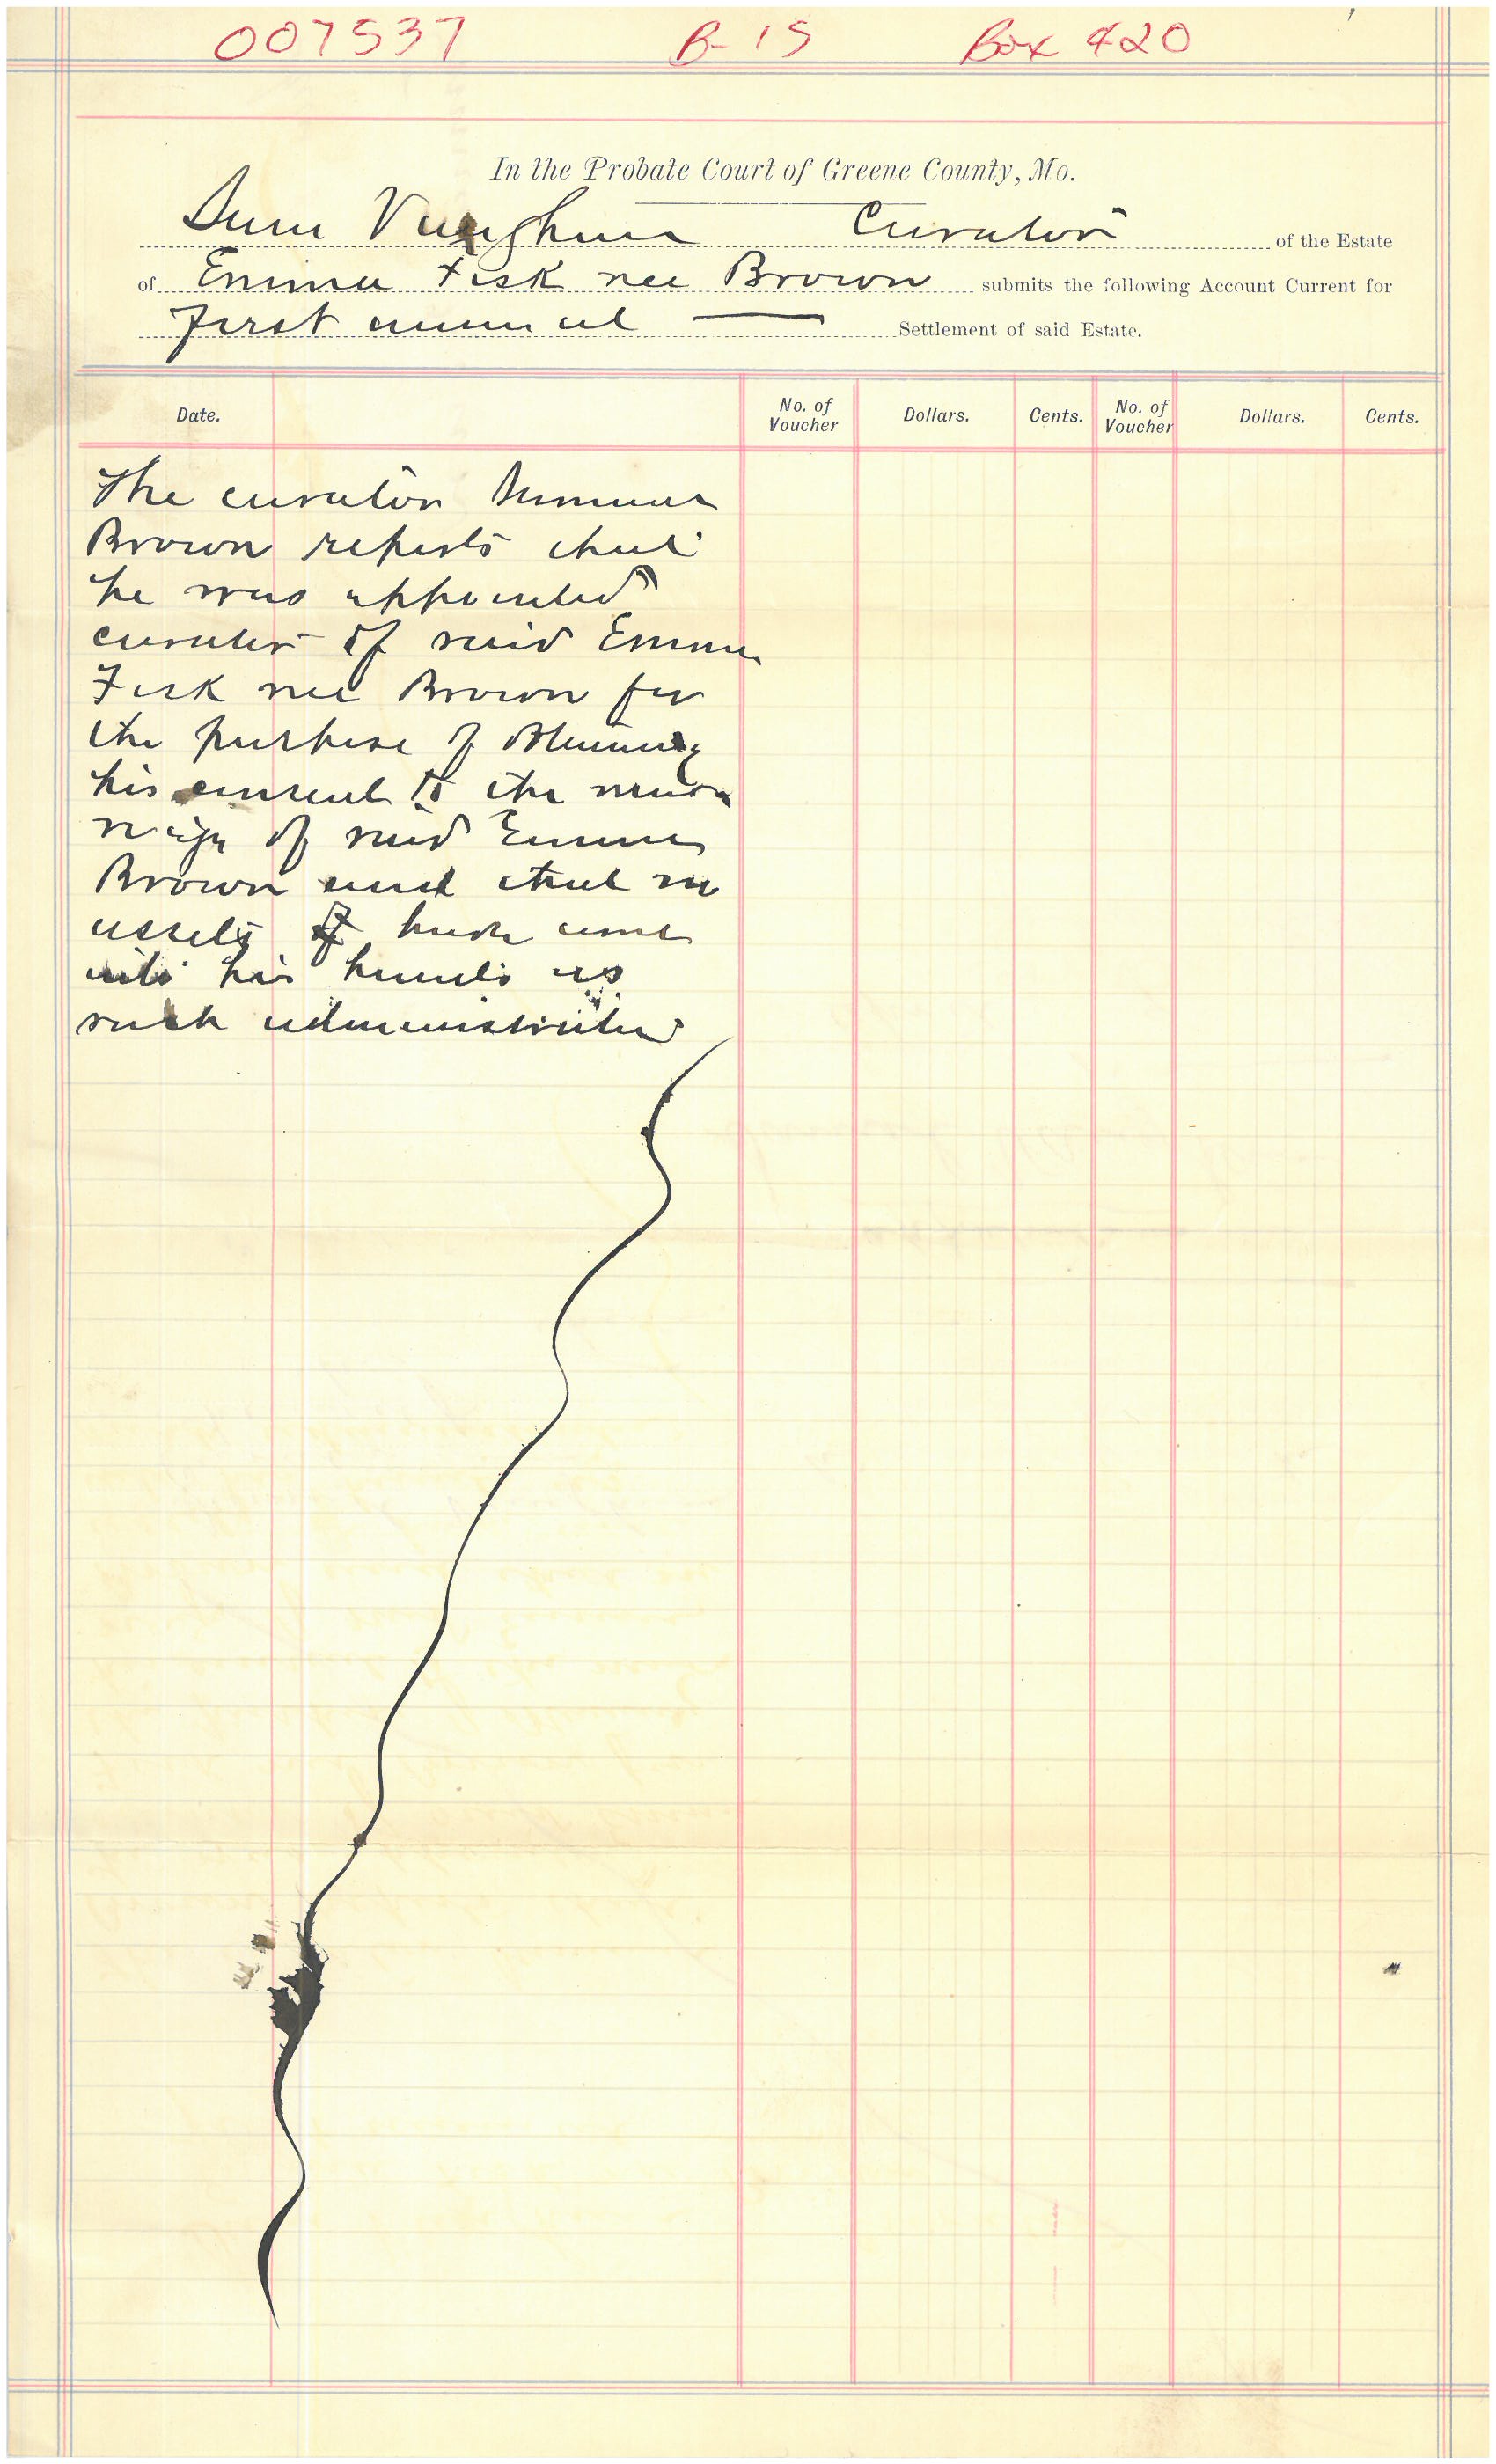 007537 B-15 Box 420
In the Probate Court of Greene County, Mo.
Sam Vaughan Curator of the Estate
of Emma Fisk nee Brown submits the following Account Current for
First annual Settlement of said Estate.
Date. No. of Voucher Dollars. Cents. No. of Voucher Dollars. Cents.
The curator
Brown reports that
he was appointed
curator of said Emma
Fisk nee Brown for
the purpose of obtaining
his consent to the marr
iage of said Emma
Brown and that no
assets have come
into his hands as
such administrator